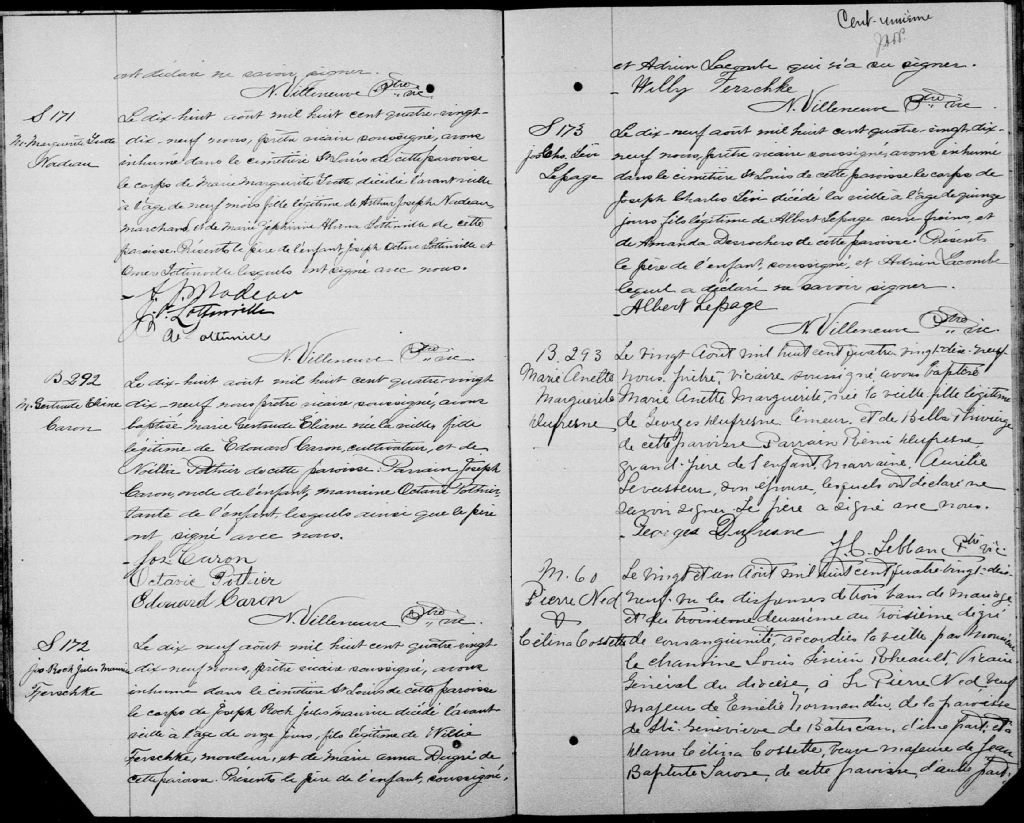 ont déclaré ne savoir signer.
N. Villeneuve Ptre vic
S 171
M. Marguerite Ivette
Nadeau
Le dix-huit août mil huit cent quatre-vingt-
dix-neuf nous, prêtre vicaire soussigné, avons
inhumé dans le cimetière St Louis de cette paroisse
le corps de Marie Marguerite Ivette, décédée l'avant veille
à l'âge de neuf mois fille légitime de Arthur Joseph Nadeau
marchand, et de Marie Zéphirine Lottinville de cette
paroisse. Présents le père de l'enfant, Joseph Octave Lottinville et
Omer Lottinville lesquels ont signé avec nous.
A. J. Nadeau
Lottinville
Lottinville
N. Villeneuve Ptre vic
B 292
M. Gertrude Eliane
Caron
Le dix-huit août mil huit cent quatre-vingt
dix-neuf nous prêtre vicaire soussigné, avons
baptisé Marie Gertrude Eliane née la veille, fille
légitime de Edouard Caron, cultivateur, et de
Noëllia Pothier de cette paroisse. Parrain Joseph
Caron, oncle de l'enfant, marraine Octavie Pothier
tante de l'enfant lesquels ainsi que le père
ont signé avec nous.
Jos Caron
Octavie Pothier
Edouard Caron
N. Villeneuve Ptre vic.
S 172
Jos Roch Jules Maurice
Ferschke
Le dix neuf août mil huit cent quatre vingt
dix-neuf nous, prêtre vicaire soussigné, avons
inhumé dans le cimetière St Louis de cette paroisse
le corps de Joseph Roch Jules Maurice décédé l'avant
veille à l'âge de onze jours, fils légitime de Willie
Ferschke, mouleur, et de Marie Anna Dugré de
cette paroisse. Présents le père de l'enfant, soussigné,
Cent-unième
et Adrien Lacombe qui n'a su signer.
Willy Ferschke
N. Villeneuve Ptre vic
S 173
Jos Chs. Lévi
Lepage
Le dix-neuf août mil huit cent quatre-vingt-dix-
neuf nous, prêtre vicaire soussigné, avons inhumé
dans le cimetière St Louis de cette paroisse le corps de
Joseph Charles Lévi décédé la veille à l'âge de quinze
jours fils légitime de Albert Lepage serre freins, et
de Amanda Desrochers de cette paroisse. Présents
le père de l'enfant, soussigné, et Adrien Lacombe
lequel a déclaré ne savoir signer.
Albert Lepage
N. Villeneuve Ptre vic
B. 293
Marie Anette
Marguerite
Dufresne
Le vingt Août mil huit cent quatre vingt-dix-neuf
nous prêtre, vicaire soussigné, avons baptisé
Marie Anette Marguerite, née la veille fille légitime
de Georges Dufresne limeur, et de Bella Thivierge
de cette paroisse Parrain Rémi Dufresne
grand-père de l'enfant marraine, Aurélie
Levasseur, son épouse, lesquels ont déclaré ne
savoir signer. Le père a signé avec nous.
Georges Dufresne
J. C. Leblanc Ptre vic
M. 60
Pierre Ned
&
Célina Cossette
Le vingt et un Août mil huit cent quatre-vingt-dix-
neuf, vu les dispenses de trois bans de mariage
et du troisième deuxième au troisième degré
de consanguinité, accordées la veille par monsieur
le chanoine Louis Séverin Rheault, Vicaire
Général du diocèse, à Sr Pierre Ned, veuf
majeur de Emélie Normandin, de la paroisse
de Ste. Geneviève de Batiscan, d'une part, et
Dame Célina Cossette, veuve majeure de Jean
Baptiste Savoie, de cette paroisse, d'autre part;